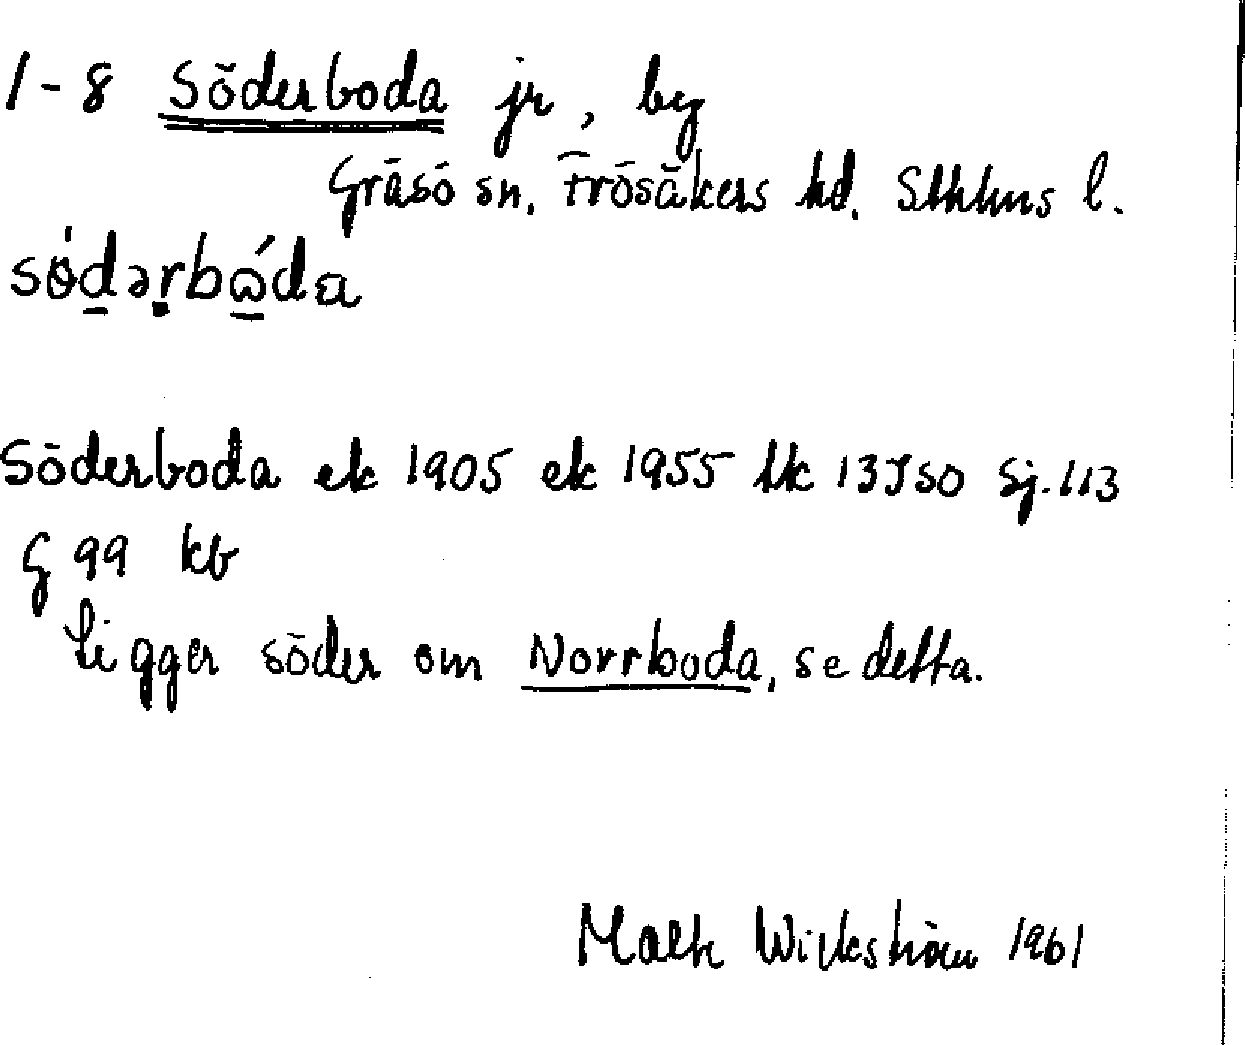 1-8 Söderboda jr, by
Gräsö sn, Frösåkers hd. Sthlms l.
sö̀dərbώ̱da
Söderboda ek 1905 ek 1955 tk 13J50 Sj. 113
G 99 kb
Ligger söder om Norrboda, se detta.
Wickström 1961